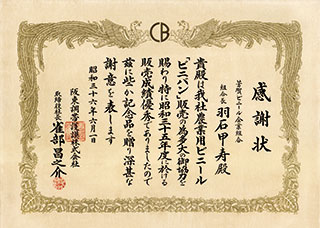 CB
感謝状
組合長 羽石甲寿殿
貴殿は我社農業用ビニール
「ビニバン」販売の為多大の御協力を
賜わり特に昭和三十五年度に於ける
販売成績優秀でありましたので
茲に些か記念品を贈り深甚な
謝意を表します
昭和三十六年六月一日
阪東調帯護謨株式会社
取締役社長 雀部昌之介